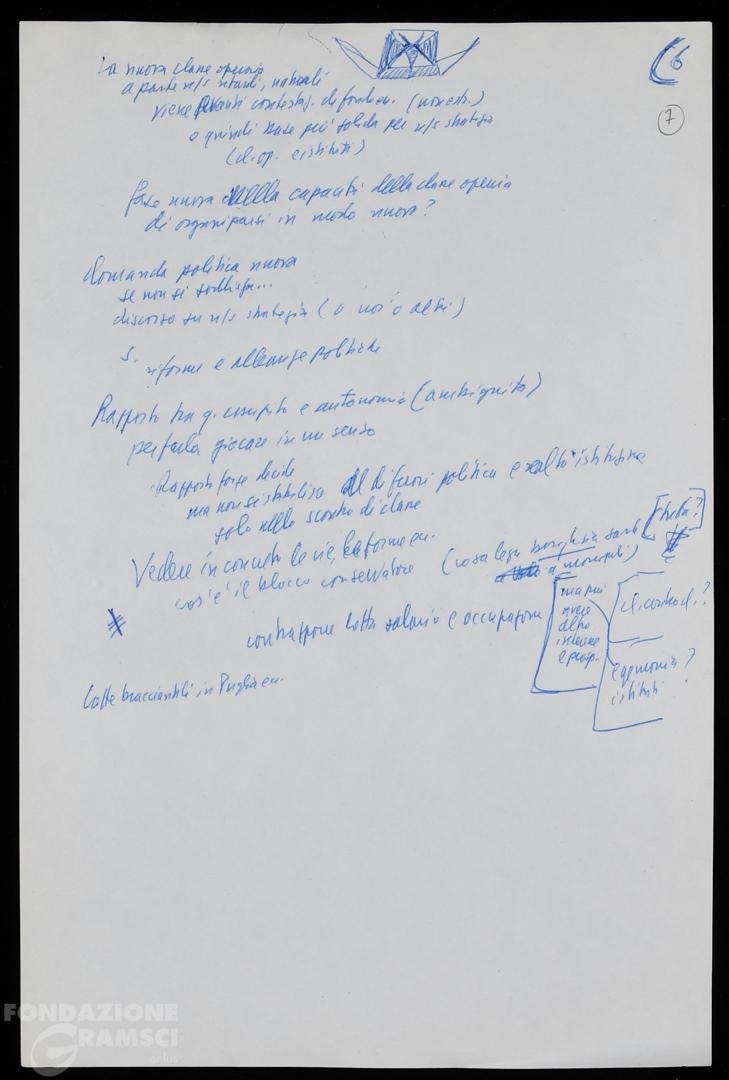 6
7
La nuova classe operaia
a parte n/s ritardi, naturali
viene avanti contestaz. di fondo ecc. (non est.)
o quindi base più solida per n/s strategia
(cl. op. e istituti)
fase nuova della capacità della classe operaia
di organizzarsi in modo nuovo?
Domanda politica nuova
se non si soddisfa...
discorso su n/s strategia (o noi o altri)
S.
riforme e alleanze politiche
Rapporto tra q. compito e autonomia (ambiguità)
per farla giocare in un senso
Rapporto forze decide
ma non si stabilisce al di fuori politica e realtà istituzione
solo nello scontro di classe
Vedere in concreto le vie, le forme ecc.
cos'è il blocco conservatore (cosa lega borghesia
a monopoli)
contrapporre lotta salario e occupazione
ma può
avere
altro
interesse
e prosp.
cl. contro cl.?
egemonia?
istituti
Lotte bracciantili in Puglia ecc.
FONDAZIONE
GRAMSCI
onlus